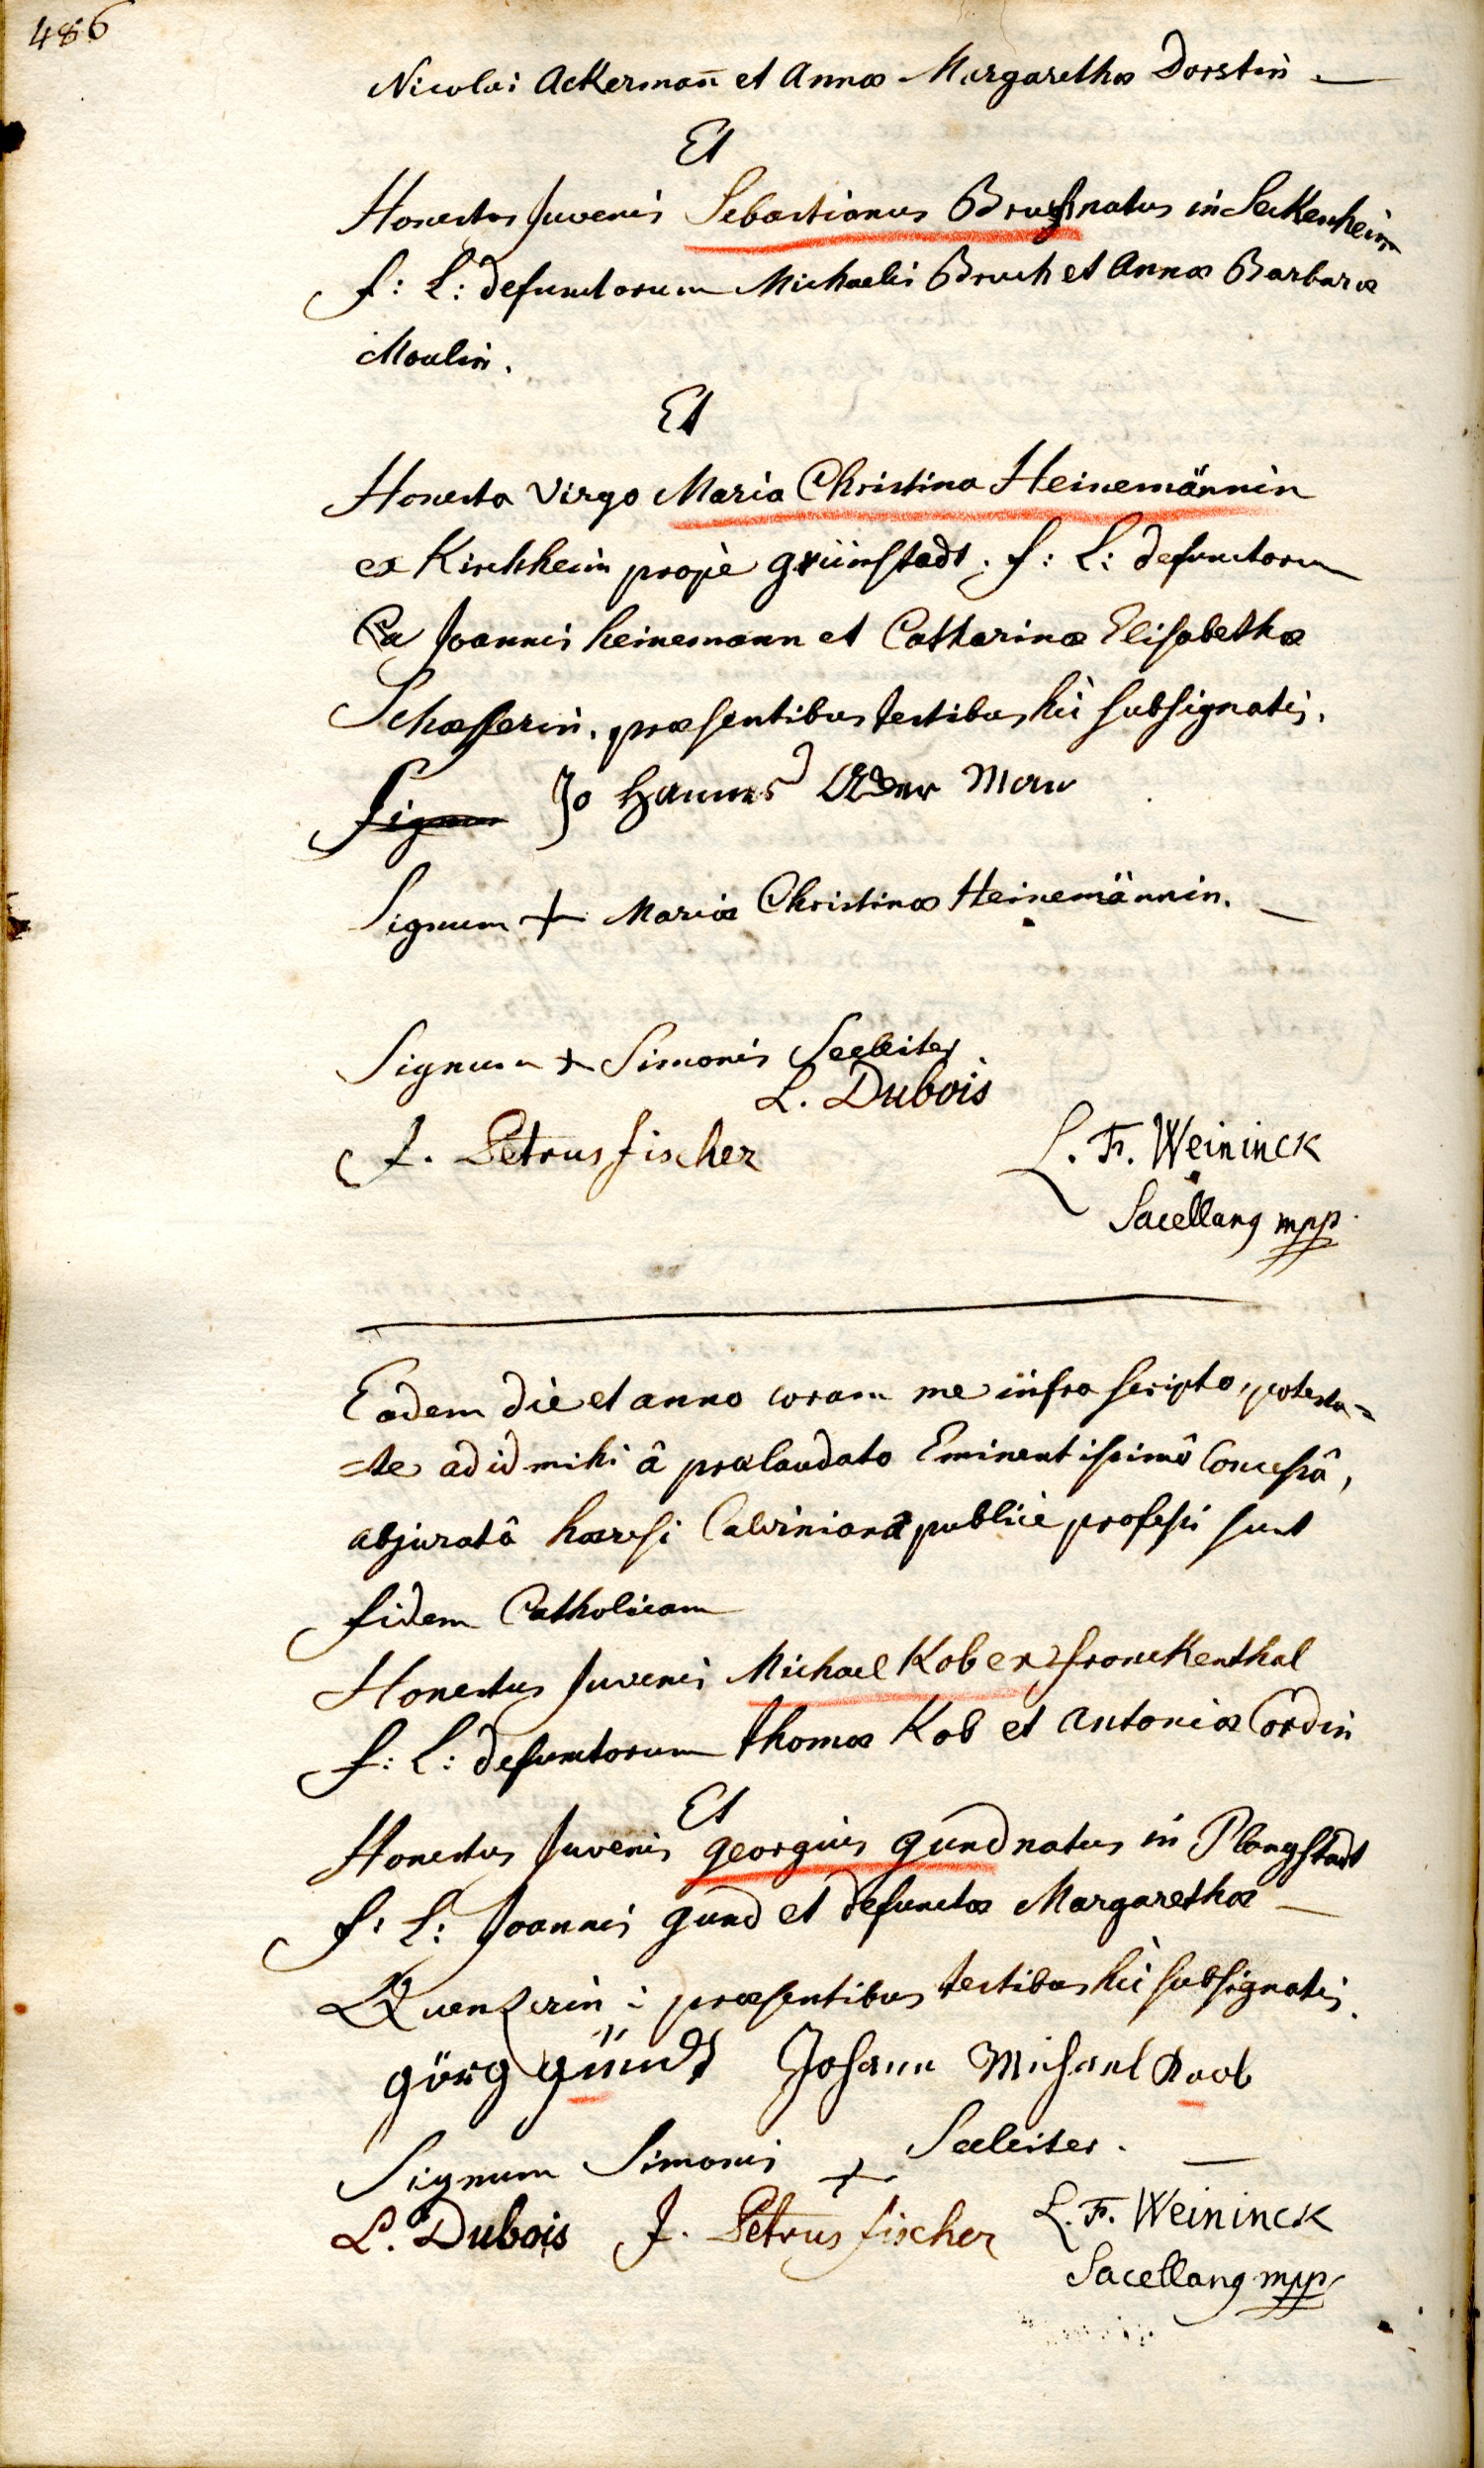 486
Nicolai Ackermañ et Annæ Margarethæ Dorstin —
Et
Honestus Juvenis Sebastianus Bruch natus in Seckenheim
f: L: defunctorum Michaelis Bruch et Annæ Barbaræ
Moulin.
Et
Honesta Virgo Maria Christina Heinemännin
ex Kirchheim propè grünstadt. f: L: defunctorum
Joannis heinemann et Catharinæ Elisabethæ
Schæfferin. præsentibus testibus hic subsignatis.
Signum Jo Hannes Acker Man
Signum + Mariæ Christinæ Heinemännin. —
Signum + Simonis Seeleiter.
L. Dubois
J. Petrus fischer
L. Fr. Weininck
Sacellanq mpp.
Eadem die et anno coram me infra scripto, potesta=
=te ad id mihi â prælaudato Eminentissimô Concessâ,
abjuratâ hæresi Calvinianâ publicè professi sunt
fidem Catholicam
Honestus Juvenis Michael Kob ex franckenthal
f: L: defunctorum thomæ Kob et antoniæ Cordin
Et
Honestus Juvenis georgius gund natus in Plangstadt
f: L: Joannis gund et defunctæ Margarethæ —
Quenzerin: præsentibus testibus hic subsignatis.
görg gündt Johann Michael Koob
Signum Simonis + Seeleiter. —
L. Dubois J. Petrus fischer L. Fr. Weininck
Sacellanq mpp